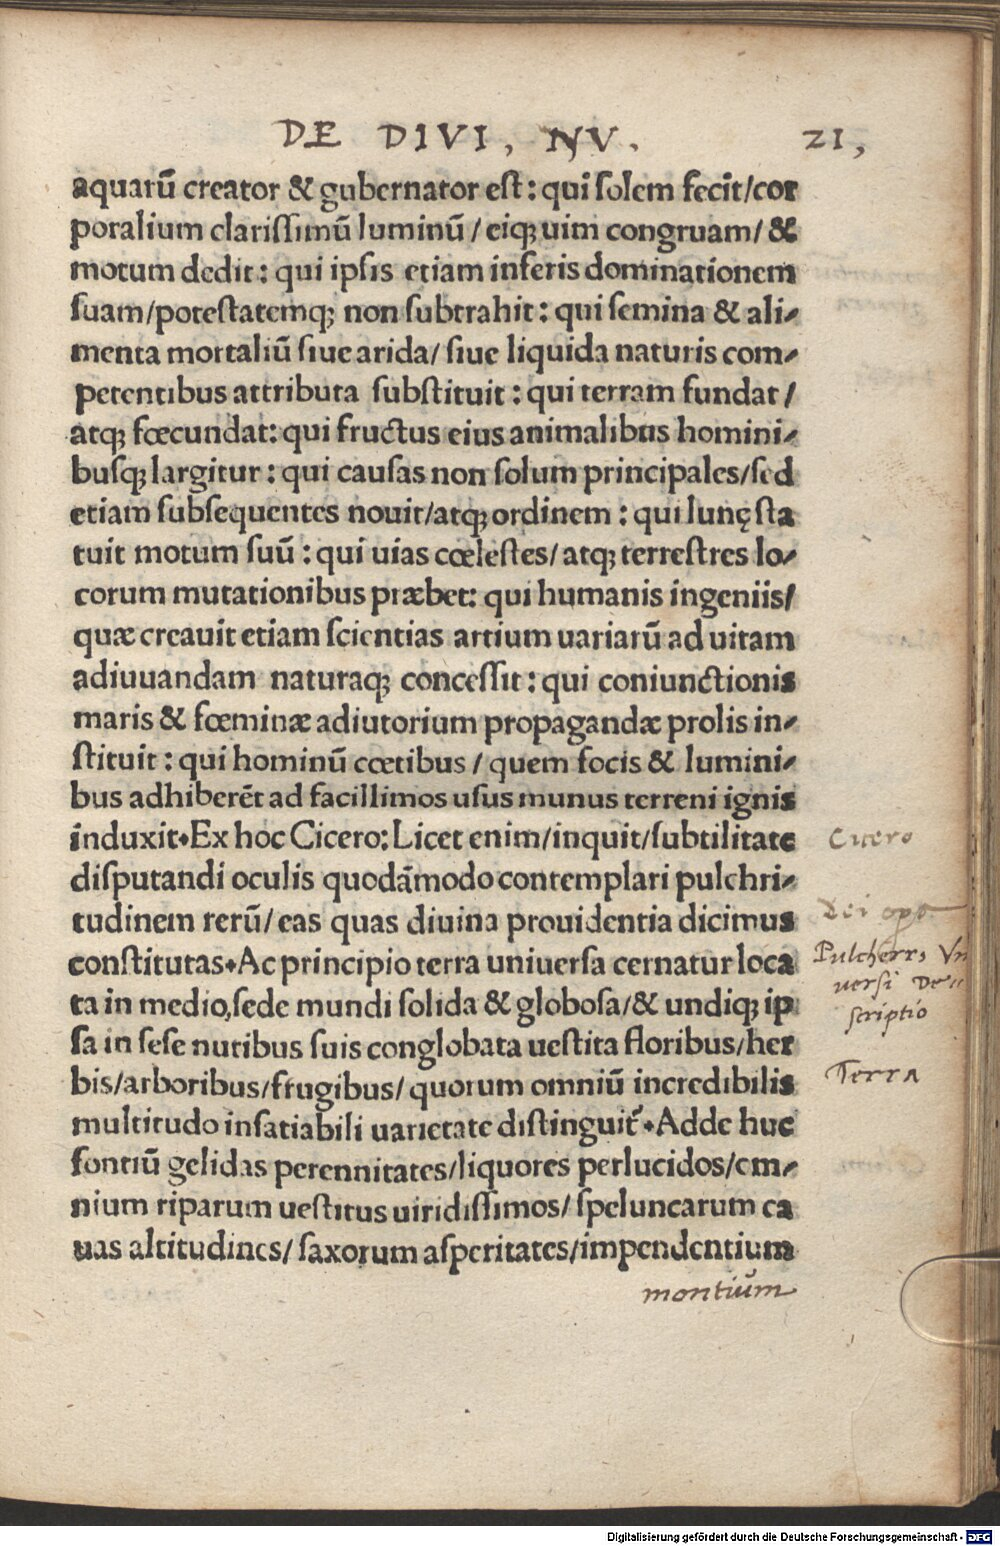 DE DIVI, NV. 21,
aquarū creator & gubernator est: qui solem fecit/cor
poralium clarissimū luminū/eiqꝫ uim congruam/&
motum dedit: qui ipsis etiam inferis dominationem
suam/potestatemqꝫ non subtrahit: qui semina & ali-
menta mortaliū siue arida/siue liquida naturis com-
petentibus attributa substituit: qui terram fundat/
atqꝫ fœcundat: qui fructus eius animalibus homini-
busqꝫ largitur: qui causas non solum principales/sed
etiam subsequentes nouit/atqꝫ ordinem: qui lunę sta
tuit motum suū: qui uias cœlestes/atqꝫ terrestres lo-
corum mutationibus præbet: qui humanis ingeniis/
quæ creauit etiam scientias artium uariarū ad uitam
adiuuandam naturaqꝫ concessit: qui coniunctionis
maris & fœminæ adiutorium propagandæ prolis in-
stituit: qui hominū cœtibus/quem focis & lumini-
bus adhiberēt ad facillimos usus munus terreni ignis
induxit. Ex hoc Cicero: Licet enim/inquit/subtilitate
Cicero
disputandi oculis quodāmodo contemplari pulchri-
tudinem rerū/eas quas diuina prouidentia dicimus
Dei
constitutas. Ac principio terra uniuersa cernatur loca
Pulcherr, Vn
ta in medio, sede mundi solida & globosa/& undiqꝫ ip
versi De-
scriptio
sa in sese nutibus suis conglobata uestita floribus/her
bis/arboribus/frugibus/quorum omniū incredibilis
Terra
multitudo insatiabili uarietate distinguit᷑. Adde huc
fontiū gelidas perennitates/liquores perlucidos/om-
nium riparum uestitus uiridissimos/speluncarum ca
uas altitudines/saxorum asperitates/impendentium
montiūm
Digitalisierung gefördert durch die Deutsche Forschungsgemeinschaft - DFG